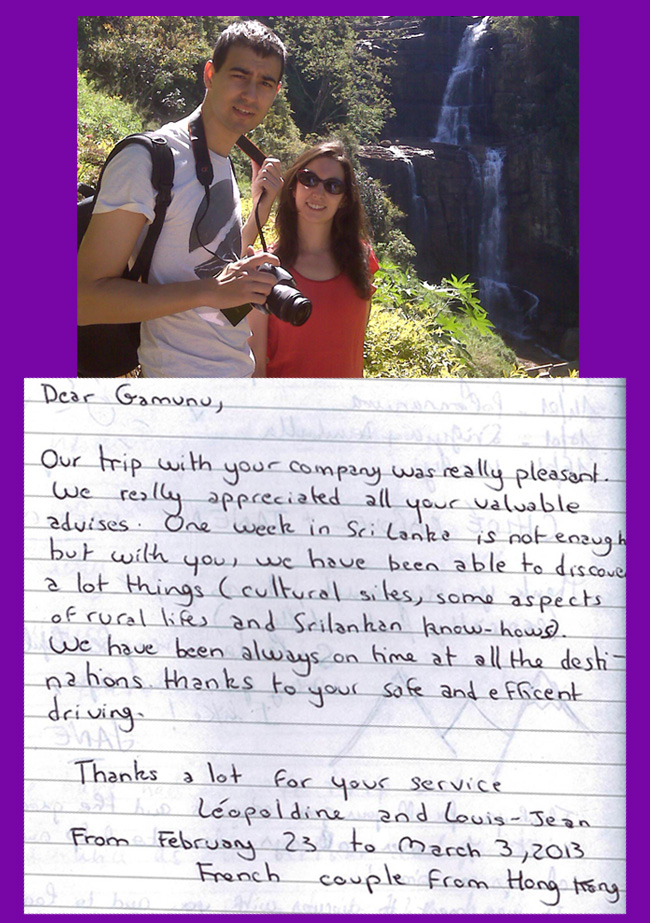 Dear Gamunu,
Our trip with your company was really pleasant.
We really appreciated all your valuable
advises. One week in Sri Lanka is not enough
but with you, we have been able to discove
a lot things (cultural sites, some aspects
of rural lifes and Srilankan know-hows).
We have been always on time at all the desti-
nations thanks to your safe and efficent
driving.
Thanks a lot for your service
Léopoldine and Louis-Jean
From February 23 to March 3, 2013
French couple from Hong Kong
JANE